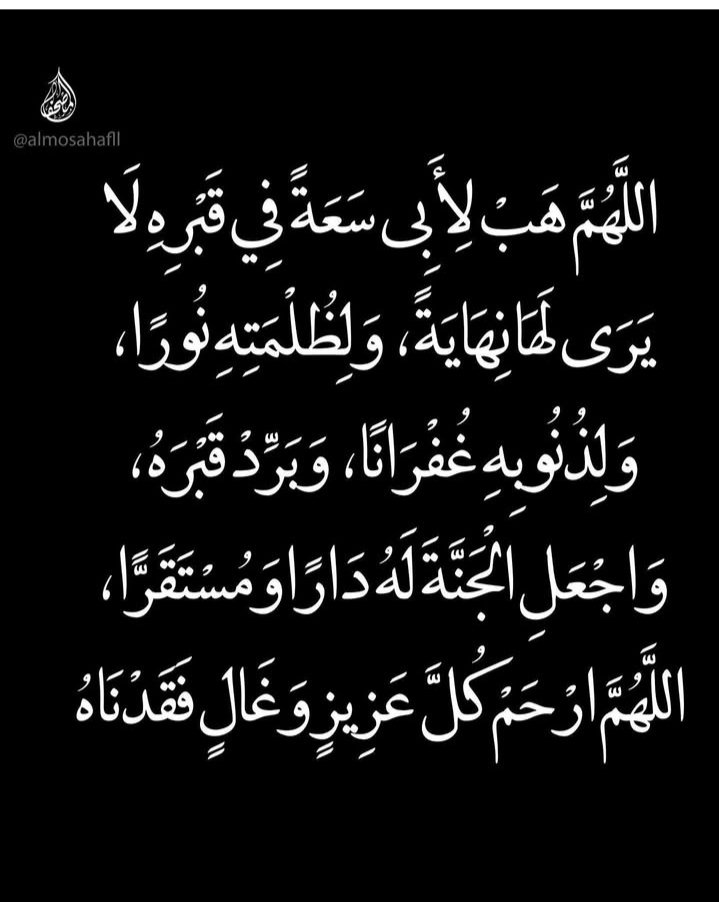 @almosahafll
اللَّهُمَّ هَبْ لِأَبِى سَعَةً فِي قَبْرِهِ لَا
يَرَى لَهَا نِهَايَةً، وَلِظُلْمَتِهِ نُورًا،
وَلِذُنُوبِهِ غُفْرَانًا، وَبَرِّدْ قَبْرَهُ،
وَاجْعَلِ الْجَنَّةَ لَهُ دَارًا وَمُسْتَقَرًّا،
اللَّهُمَّ ارْحَمْ كُلَّ عَزِيزٍ وَغَالٍ فَقَدْنَاهُ